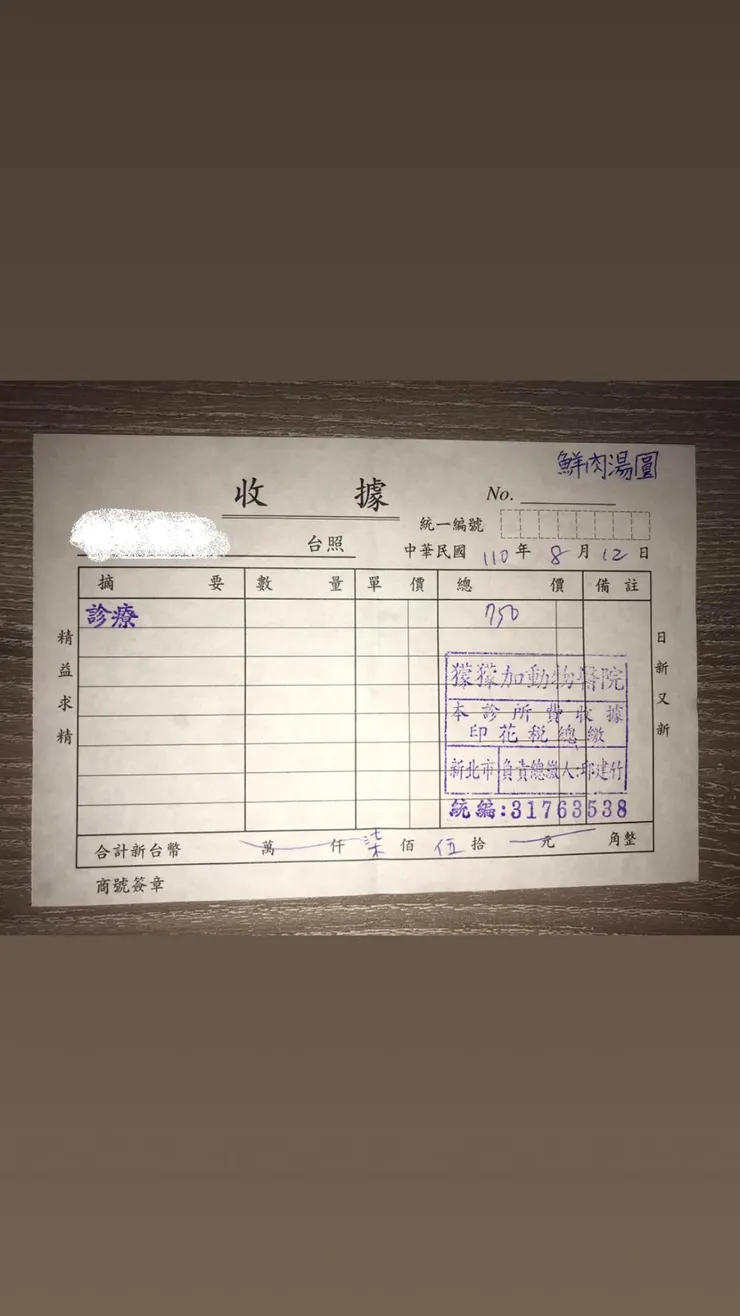 鮮肉湯圓
收據
No.
統一編號
台照
中華民國 110 年 8 月 12 日
摘要 數量 單價 總價 備註
診療 750
精益求精
日新又新
獴獴加動物醫院
本診所費收據
印花稅總繳
新北市 負責總繳人:邱建竹
統編:31763538
合計新台幣 萬 仟 柒 佰 伍 拾 元 角整
商號簽章